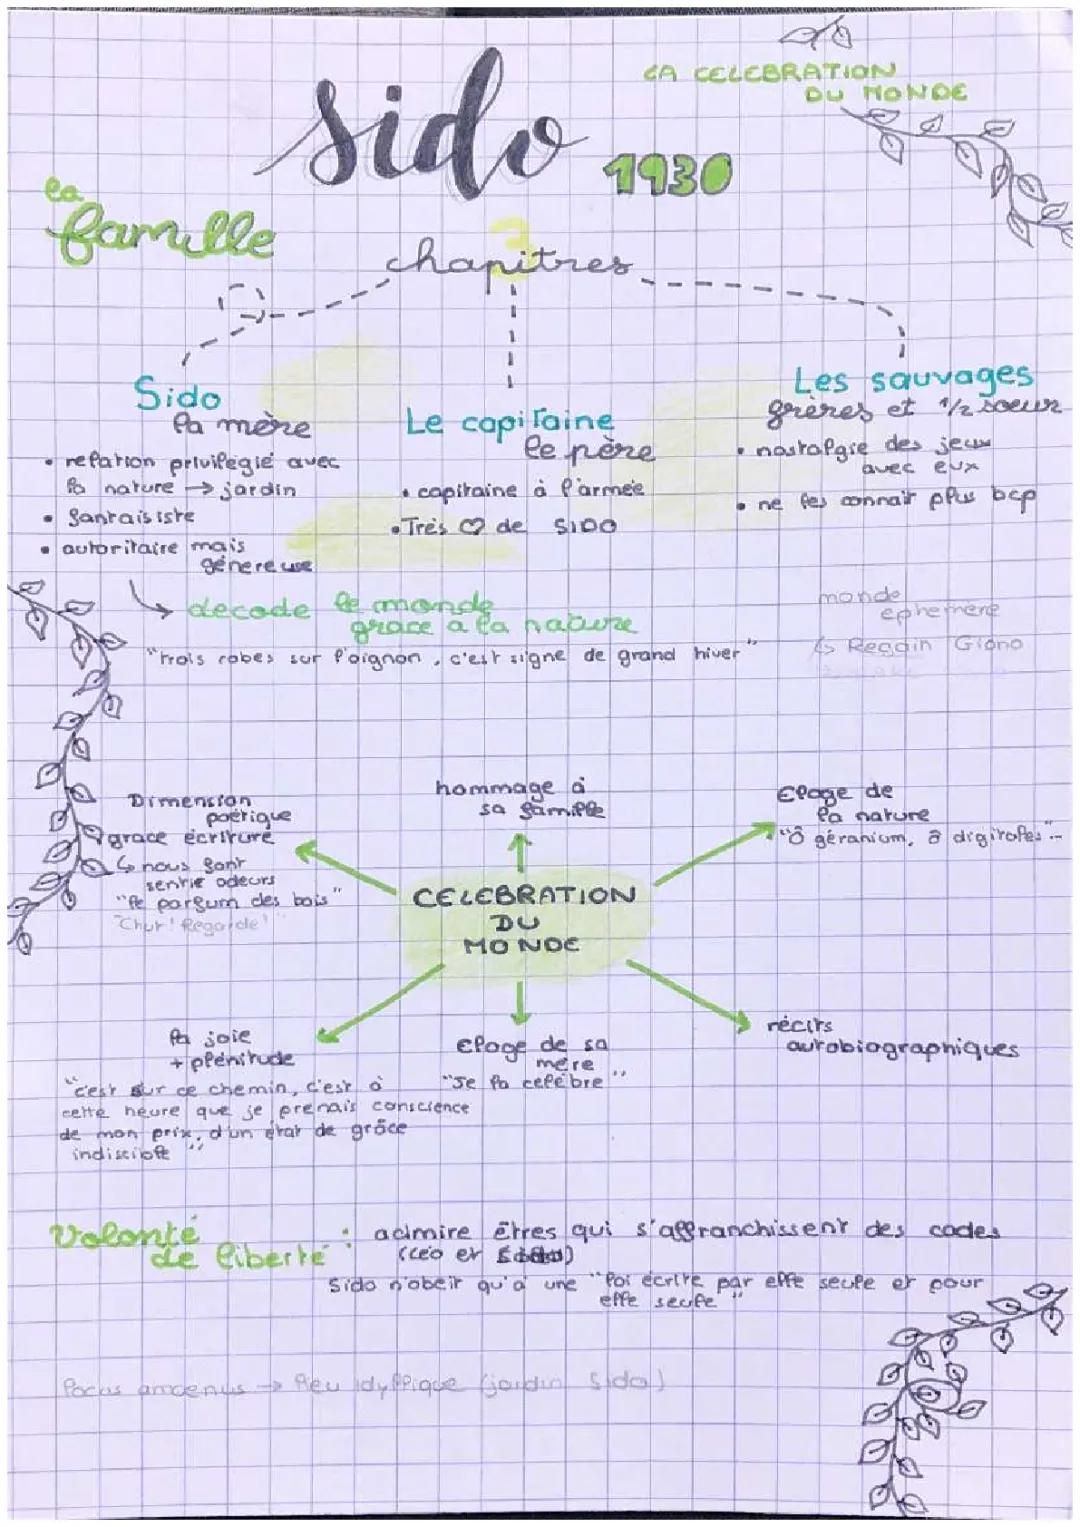 LA CELEBRATION
DU MONDE
Sido 1930
la
famille
3
chapitres
Sido
la mère
• relation privilégié avec
la nature → jardin
• fantaisiste
• autoritaire mais
génereuse
Le capitaine
le père
• capitaine à l'armée
• Très ♡ de SIDO
Les sauvages
frères et 1/2 soeur
• nostalgie des jeux
avec eux
• ne les connait plus bcp
↳ decode le monde
grace a la nature
"trois robes sur l'oignon, c'est signe de grand hiver"
monde
ephemère
↳ Regain Giono
Dimension
poétique
grace écriture
↳ nous font
sentir odeurs
"le parfum des bois"
"Chut! Regarde!"
hommage à
sa famille
Eloge de
la nature
"Ô géranium, ô digitales"...
CELEBRATION
DU
MONDE
la joie
+ plénitude
"c'est sur ce chemin, c'est à
cette heure que je prenais conscience
de mon prix, d'un état de grâce
indiscible"
Eloge de sa
mère
"Je la celèbre"
récits
autobiographiques
Volonté
de liberté : admire êtres qui s'affranchissent des codes
(Léo et Sido)
Sido n'obeit qu'à une "loi écrite par elle seule et pour
elle seule"
locus amoenus → lieu idyllique (jardin Sido)